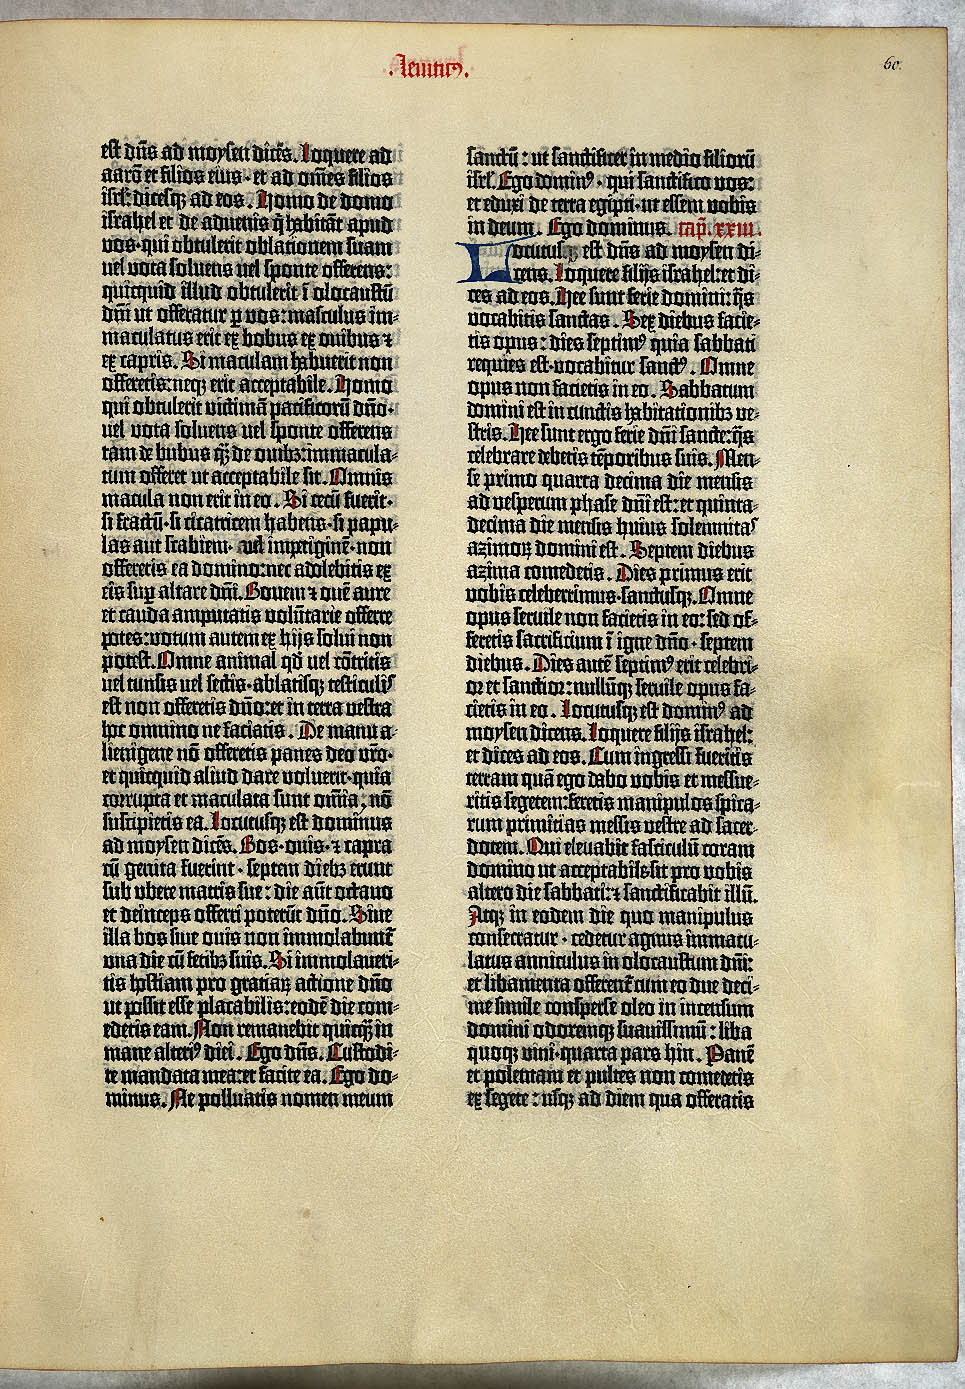 .leuitic9.
60.
est dn̄s ad moysen dicēs. Loquere ad
aarō et filios eius · et ad om̄es filios
isrl̄: dicesqꝫ ad eos. Homo de domo
israhel et de aduenis q̄ habitāt apud
vos · qui obtulerit oblationem suam
uel vota soluens uel sponte offerens:
quicquid illud obtulerit ī olocaustū
dn̄i ut offeratur ꝑ vos: masculus im-
maculatus erit ex bobus ex ouibus ⁊
ex capris. Si maculam habuerit non
offeretis: neqꝫ erit acceptabile. Homo
qui obtulerit victimā pacificorū dn̄o ·
uel vota soluens uel sponte offerens
tam de bubus qꝫ̄ de ouibꝫ: immacula-
tum offeret ut acceptabile sit. Omnis
macula non erit in eo. Si cecū fuerit ·
si fractū · si cicatricem habens · si papu-
las aut scabiem · uel impetiginē · non
offeretis ea domino: nec adolebitis ex
eis suꝑ altare dn̄i. Bouem ⁊ ouē aure
et cauda amputatis volūtarie offerre
potes: votum autem ex hijs solui non
potest. Omne animal qd̄ uel cōtritis
uel tunsis uel sectis · ablatisqꝫ testiculis
est non offeretis dn̄o: et in terra vestra
hoc omnino ne faciatis. De manu a-
lienigene nō offeretis panes deo vr̄o ·
et quicquid aliud dare voluerit · quia
corrupta et maculata sunt om̄ia: nō
suscipietis ea. Locutusqꝫ est dominus
ad moysen dicēs. Bos · ouis · ⁊ capra
cū genita fuerint · septem diebꝫ erunt
sub vbere matris sue: die aūt octauo
et deinceps offerri poterūt dn̄o. Siue
illa bos siue ouis non immolabunt̄
vna die cū fetibꝫ suis. Si immolaueri-
tis hostiam pro gratiaꝝ actione dn̄o
ut possit esse placabilis: eodē die com-
edetis eam. Non remanebit quicqꝫ̄ in
mane alteri9 diei. Ego dn̄s. Custodi-
te mandata mea: et facite ea. Ego do-
minus. Ne polluatis nomen meum
sanctū: ut sanctificer in medio filiorū
isrl̄. Ego domin9 · qui sanctifico vos:
et eduxi de terra egipti · ut essem vobis
in deum. Ego dominus. cap̄. xxiii.
Locutusqꝫ est dn̄s ad moysen di-
cens. Loquere filijs israhel: et di-
ces ad eos. Hee sunt ferie domini: q̄s
vocabitis sanctas. Sex diebus facie-
tis opus: dies septim9 quia sabbati
requies est · vocabitur sanct9. Omne
opus non facietis in eo. Sabbatum
domini est in cunctis habitationibꝫ ve-
stris. Hee sunt ergo ferie dn̄i sancte: q̄s
celebrare debetis tēporibus suis. Men-
se primo quarta decima die mensis
ad vesperum phase dn̄i est: et quinta-
decima die mensis huius solemnitas
azimoꝝ domini est. Septem diebus
azima comedetis. Dies primus erit
vobis celeberrimus · sanctusqꝫ. Omne
opus seruile non facietis in eo: sed of-
feretis sacrificium ī igne dn̄o · septem
diebus. Dies autē septim9 erit celebri-
or et sanctior: nullūqꝫ seruile opus fa-
cietis in eo. Locutusqꝫ est domin9 ad
moysen dicens. Loquere filijs israhel:
et dices ad eos. Cum ingressi fueritis
terram quā ego dabo vobis et messue-
ritis segetem: feretis manipulos spica-
rum primitias messis vestre ad sacer-
dotem. Qui eleuabit fasciculū coram
domino ut acceptabile sit pro vobis
altero die sabbati: ⁊ sanctificabit illū.
Atqꝫ in eodem die quo manipulus
consecratur · cedetur agnus immacu-
latus anniculus in olocaustum dn̄i:
et libamenta offerent̄ cum eo due deci-
me simile consperse oleo in incensum
domini odoremqꝫ suauissimū: liba
quoqꝫ vini · quarta pars hin. Panē
et polentam et pultes non comedetis
ex segete: usqꝫ ad diem qua offeratis